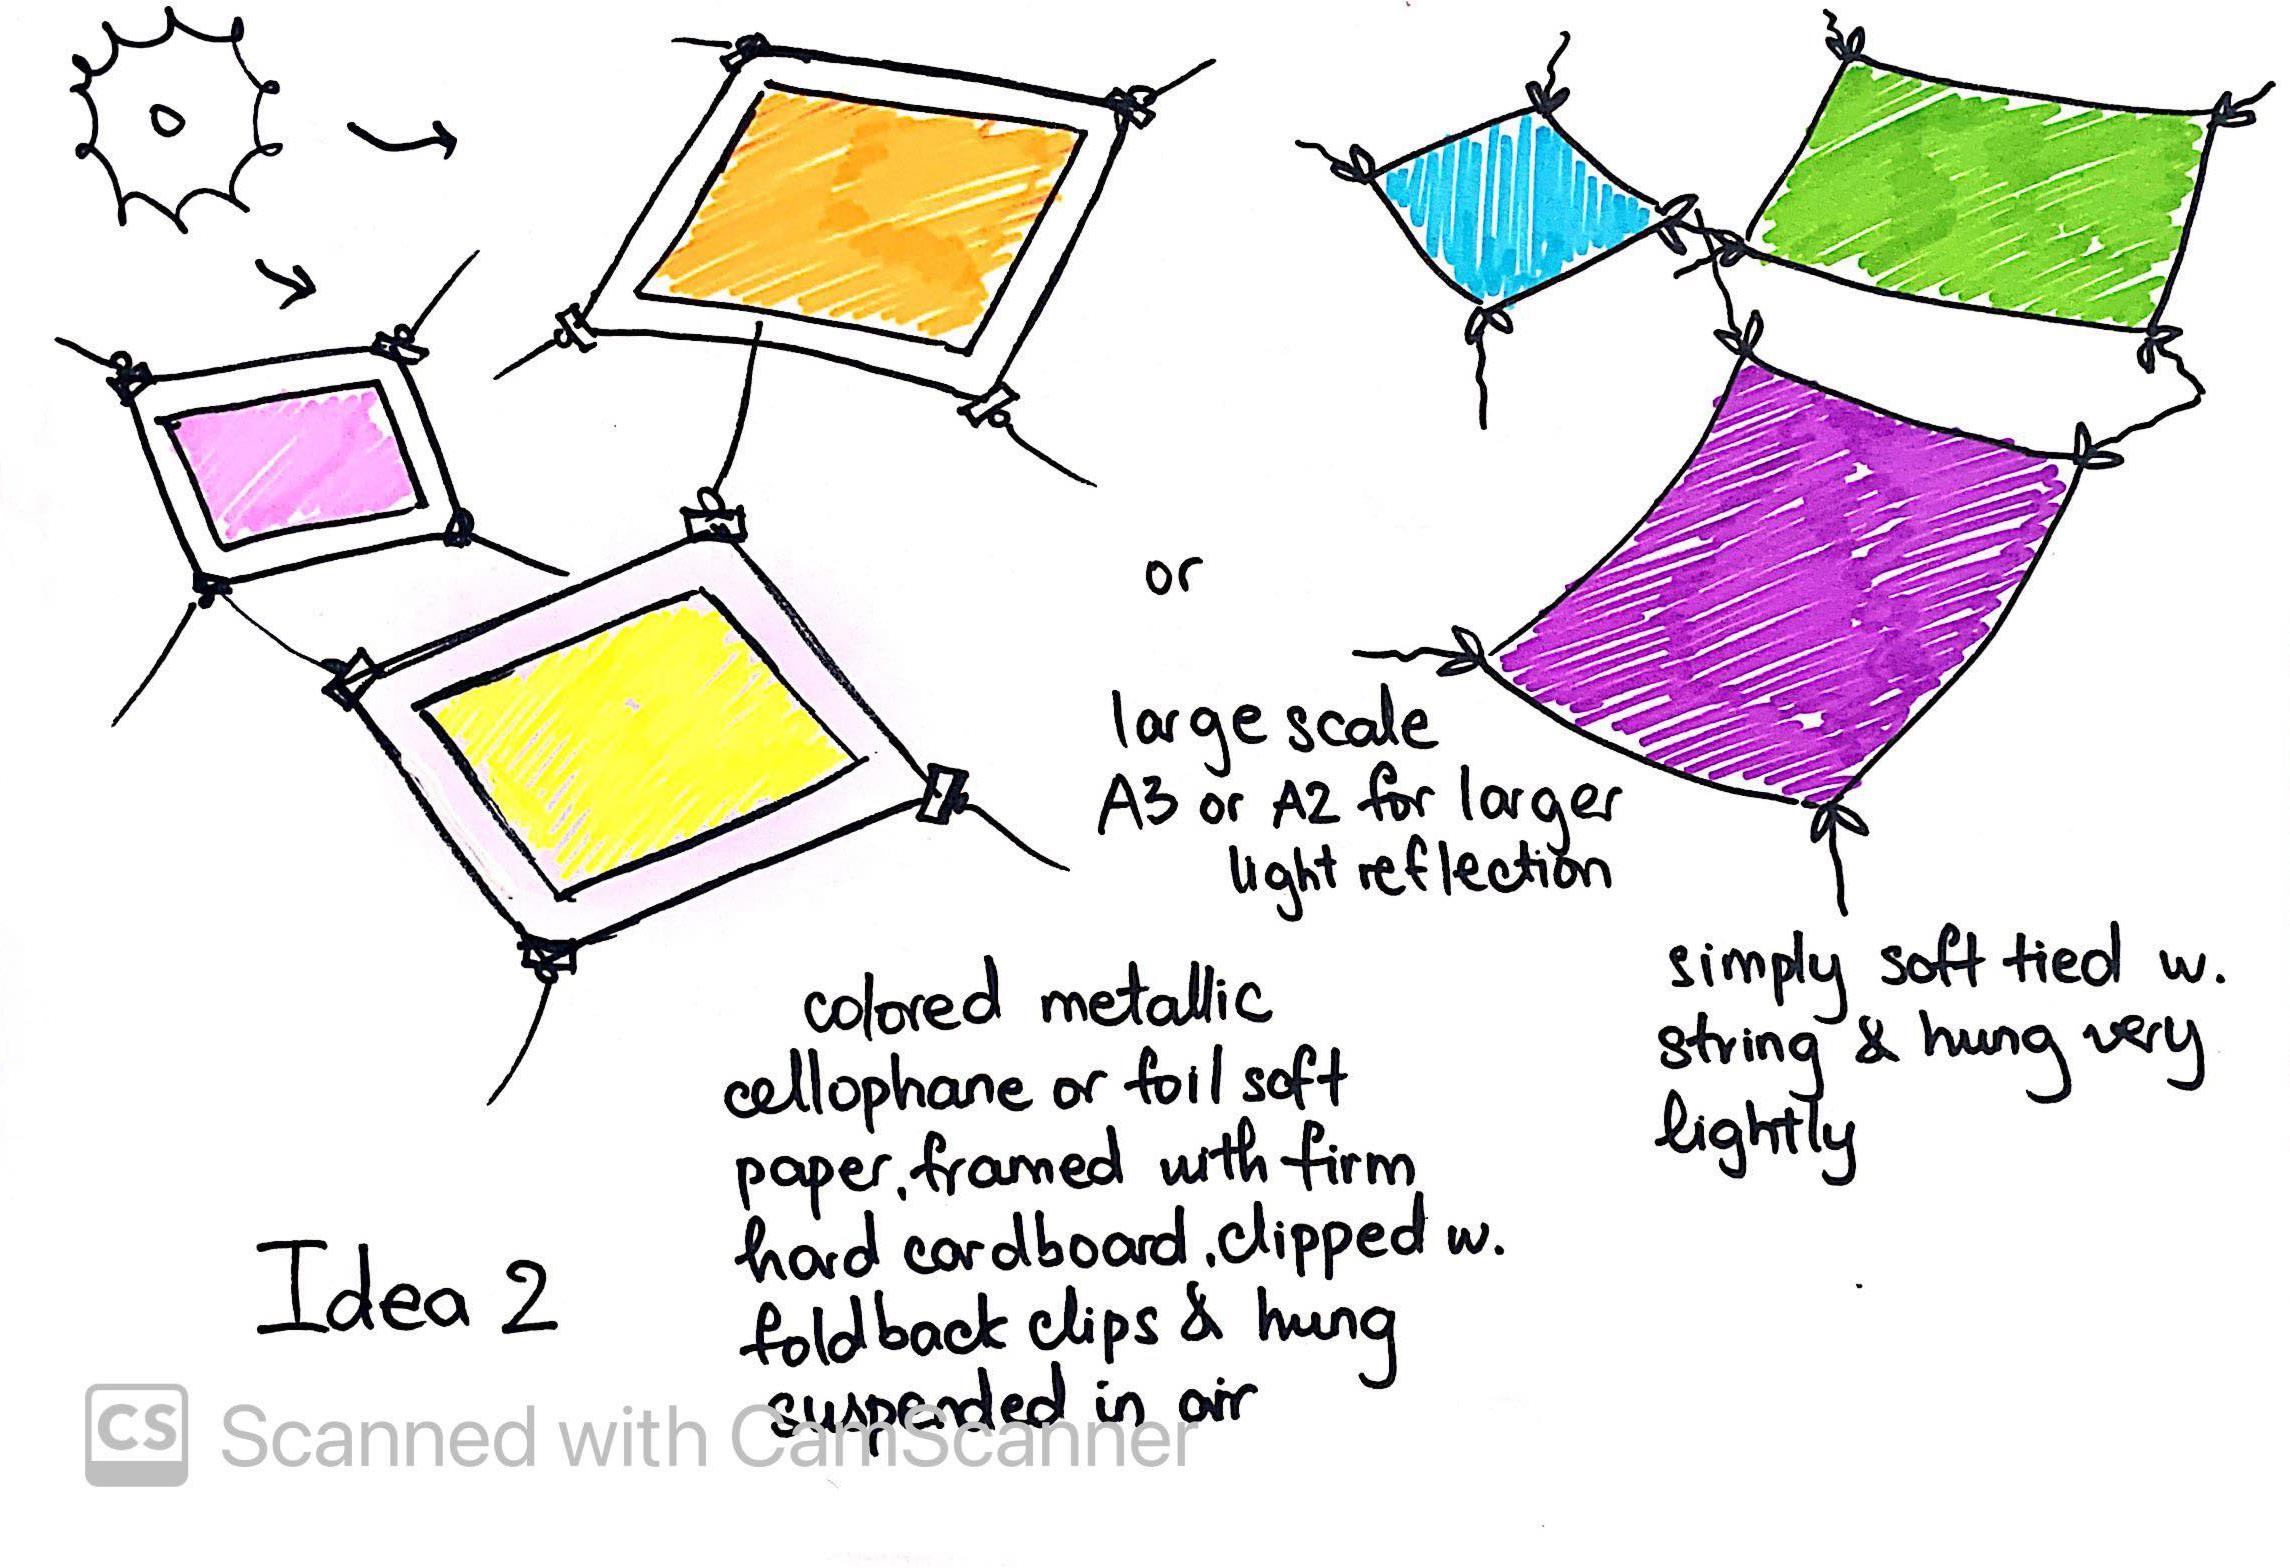 or
large scale
A3 or A2 for larger
light reflection
simply soft tied w.
string & hung very
lightly
colored metallic
cellophane or foil soft
paper, framed with firm
hard cardboard, clipped w.
foldback clips & hung
suspended in air
Idea 2
CS Scanned with CamScanner